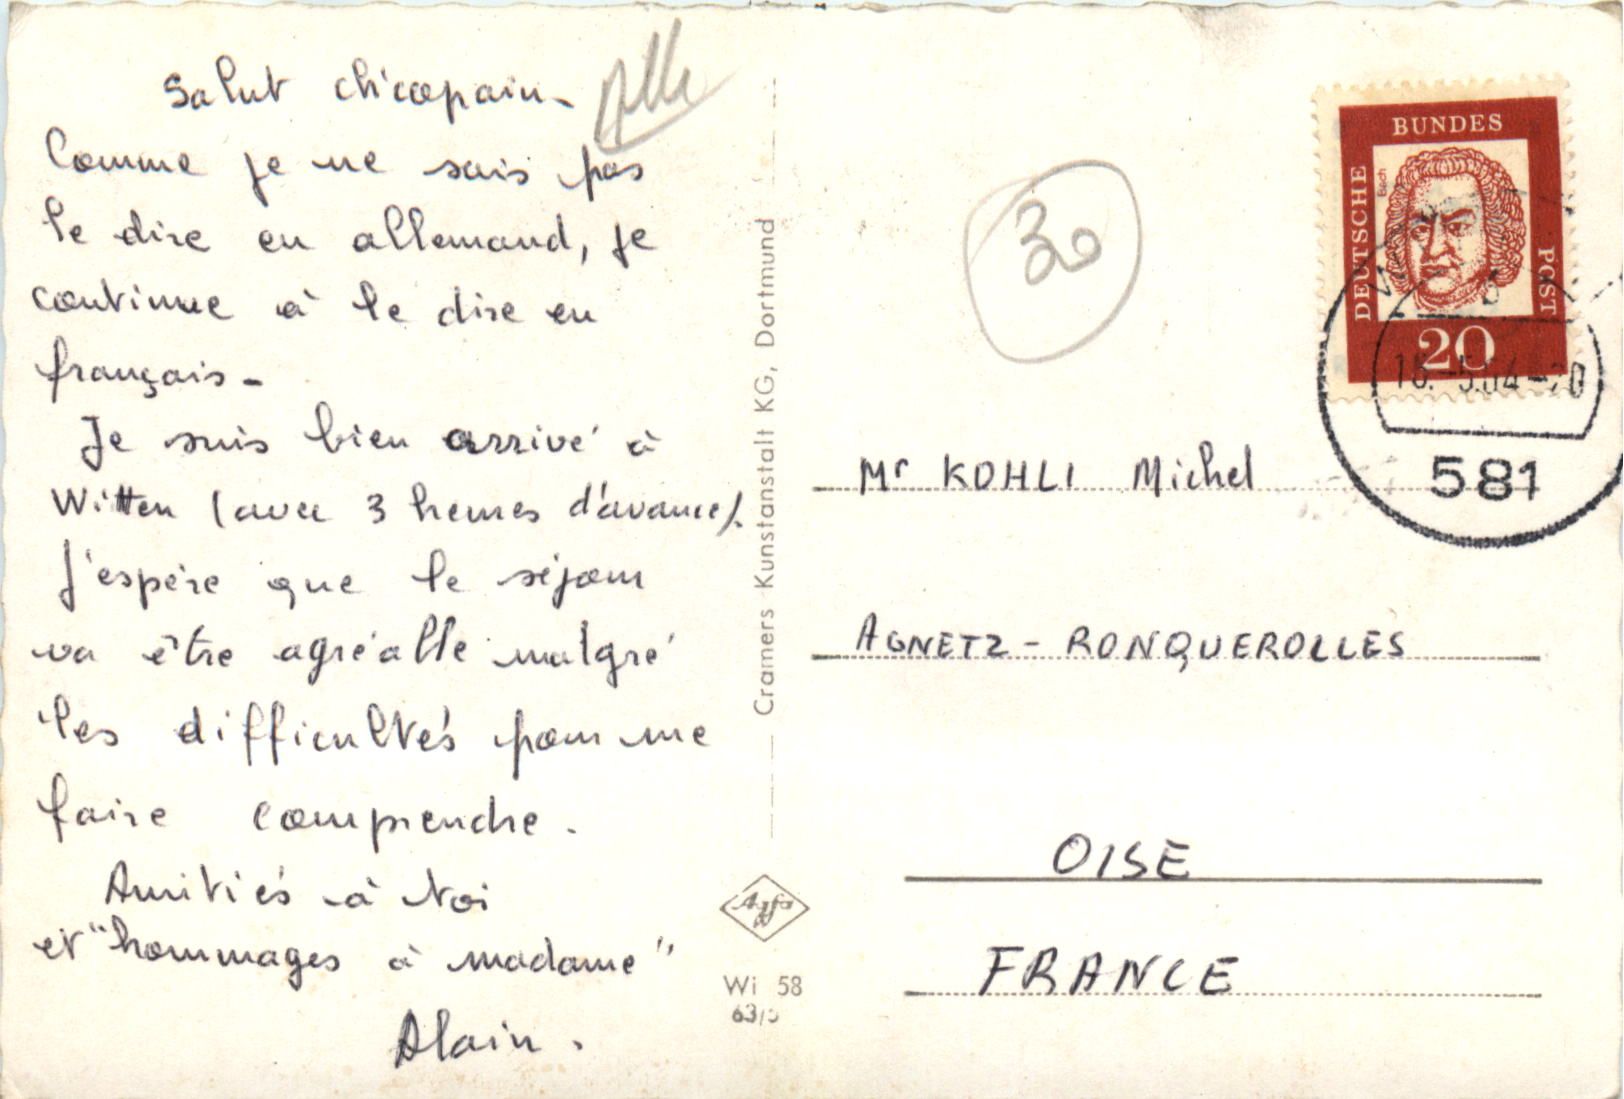 Salut chicopain-
Comme je ne sais pas
le dire en allemand, je
continue à le dire en
français-
Je suis bien arrivé à
Witten (avec 3 heures d'avance).
J'espère que le séjour
va être agréable malgré
les difficultés pour me
faire comprendre.
Amitiés à toi
et "hommages à madame"
Alain.
Cramers Kunstanstalt KG, Dortmund
Agfa
Wi 58
63/5
30
DEUTSCHE BUNDESPOST
Bach
20
581
Mr KOHLI Michel
AGNETZ - RONQUEROLLES
OISE
FRANCE